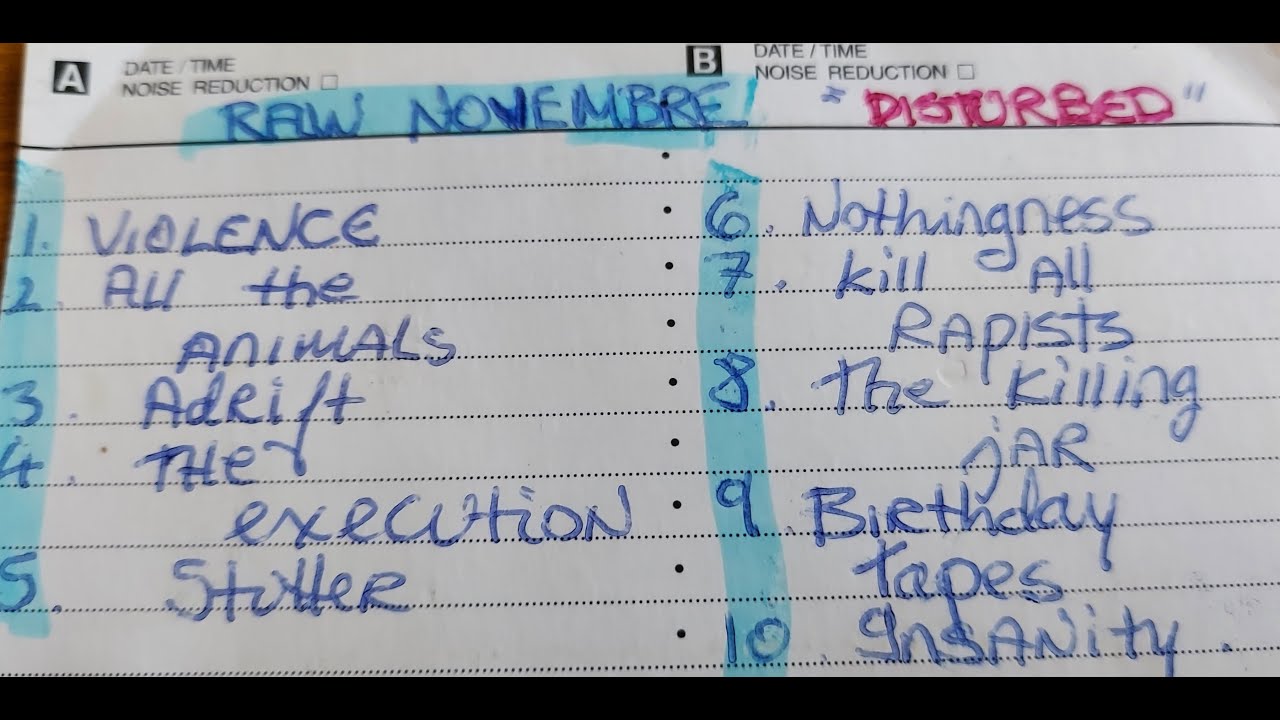 A DATE / TIME
NOISE REDUCTION
RAW NOVEMBRE
1. VIOLENCE
2. All the
ANIMALS
3. Adrift
4. THE
execution
5. Stutter
B DATE / TIME
NOISE REDUCTION
"DISTURBED"
6. Nothingness
7. Kill All
RAPISTS
8. The Killing
jAR
9. Birthday
Tapes
10. InSANity.